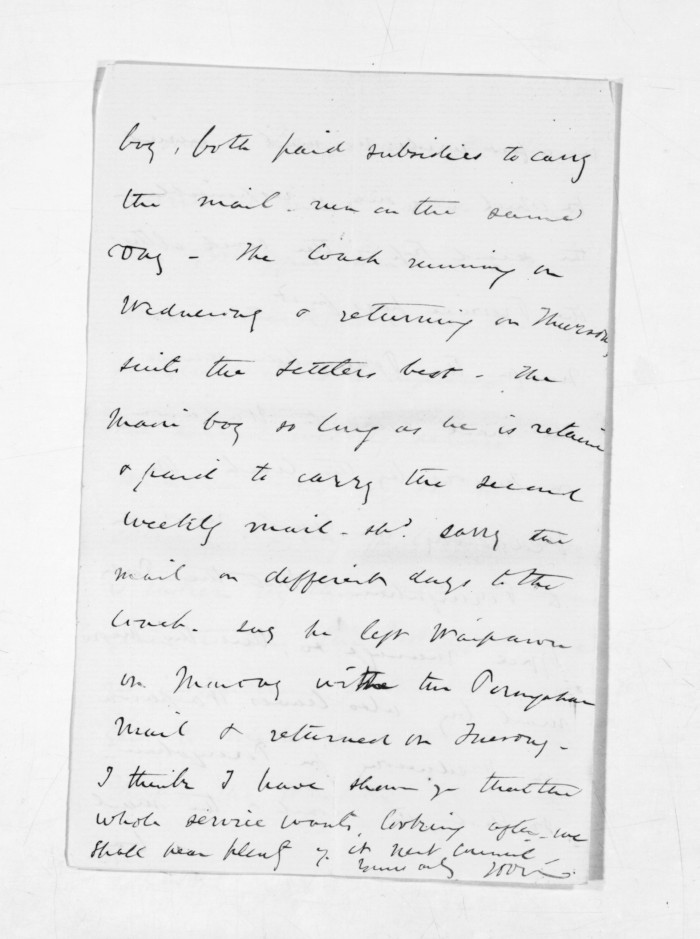 boy, both paid subsidies to carry
the mail - run on the same
day - The Coach running on
Wednesday & returning on Thursday
suits the settlers best - The
Maori boy so long as he is retained
& paid to carry the second
weekly mail - shd. carry the
mail on different days to the
Coach - say he left Waipawa
on Monday with the Porangahau
Mail & returned on Tuesday -
I think I have shown you that the
whole service wants looking after - we
shall hear plenty of it next council
Yours only